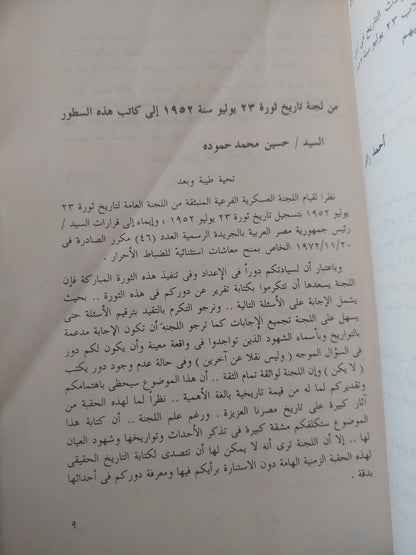 من لجنة تاريخ ثورة ٢٣ يوليو سنة ١٩٥٢ إلى كاتب هذه السطور
السيد / حسين محمد حموده
تحية طيبة وبعد
نظرا لقيام اللجنة العسكرية الفرعية المنبثقة من اللجنة العامة لتاريخ ثورة ٢٣
يوليو ١٩٥٢ بتسجيل تاريخ ثورة ٢٣ يوليو ١٩٥٢ ، وإيماء إلى قرارات السيد /
رئيس جمهورية مصر العربية بالجريدة الرسمية العدد (٤٦) مكرر الصادرة فى
١٩٧٢/١١/٢٠ الخاص بمنح معاشات استثنائية للضباط الأحرار .
وباعتبار أن لسيادتكم دوراً فى الإعداد وفى تنفيذ هذه الثورة المباركة فإن
اللجنة يسعدها أن تتكرموا بكتابة تقرير عن دوركم فى هذه الثورة .. بحيث
يشمل الإجابة على الأسئلة التالية .. ونرجو التكرم بالتقيد بترقيم الأسئلة حتى
يسهل على اللجنة تجميع الإجابات كما نرجو اللجنة أن تكون الإجابة مدعمة
بالتواريخ وبأسماء الشهود الذين تواجدوا فى واقعة معينة وأن يكون لكم دور
فى السؤال الموجه ( وليس نقلا عن آخرين ) وفى حالة عدم وجود دور يكتب
( لا يكن ) وإن اللجنة لواثقة تمام الثقة .. أن هذا الموضوع سيحظى باهتمامكم
وتقديركم لما له من قيمة تاريخية بالغة الأهمية .. نظراً لما لهذه الحقبة من
آثار كبيرة على تاريخ مصرنا العزيزة . ورغم علم اللجنة .. أن كتابة هذا
الموضوع ستكلفكم مشقة كبيرة فى تذكر الأحداث وتواريخها وشهود العيان
لها .. إلا أن اللجنة ترى أنه لا يمكن لها أن تتصدى لكتابة التاريخ الحقيقى
لهذه الحقبة الزمنية الهامة دون الاستنارة برأيكم فيها ومعرفة دوركم فى أحداثها
بدقة .
٩